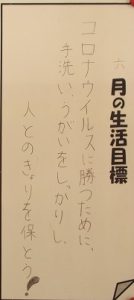 六月の生活目標
コロナウイルスに勝つために、
手洗い、うがいをしっかりし、
人とのきょりを保とう!